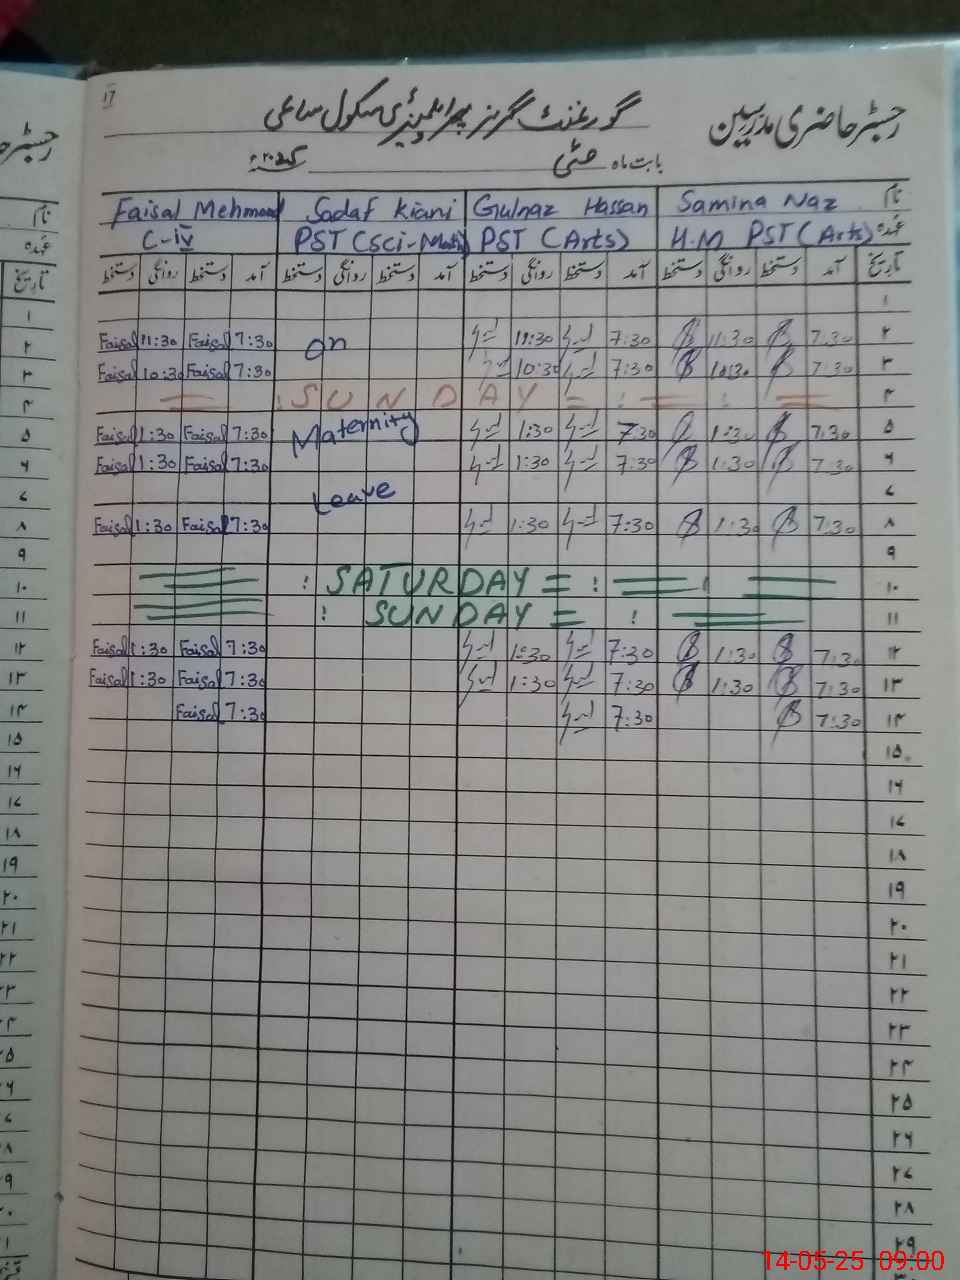 ۱۷
رجسٹر حاضری مدرسین گورنمنٹ گرلز پرائمری سکول
بابت ماہ مئی ۲۰۲۵ء
نام Samina Naz Gulnaz Hassan Sadaf Kiani Faisal Mehmood
عہدہ H.M PST (Arts) PST (Arts) PST (Sci-Math) C-IV
تاریخ آمد دستخط روانگی دستخط آمد دستخط روانگی دستخط آمد دستخط روانگی دستخط آمد دستخط روانگی دستخط
۱
۲ 7:30 11:30 7:30 11:30 on 7:30 Faisal 11:30 Faisal
۳ 7:30 10:30 7:30 10:30 7:30 Faisal 10:30 Faisal
۴ = : SUNDAY = : = : =
۵ 7:30 1:30 7:30 1:30 Maternity 7:30 Faisal 1:30 Faisal
۶ 7:30 1:30 7:30 1:30 7:30 Faisal 1:30 Faisal
۷ Leave
۸ 7:30 1:30 7:30 1:30 7:30 Faisal 1:30 Faisal
۹
۱۰ : SATURDAY = :
۱۱ : SUNDAY = :
۱۲ 7:30 1:30 7:30 1:30 7:30 Faisal 1:30 Faisal
۱۳ 7:30 1:30 7:30 1:30 7:30 Faisal 1:30 Faisal
۱۴ 7:30 7:30 7:30 Faisal
۱۵
۱۶
۱۷
۱۸
۱۹
۲۰
۲۱
۲۲
۲۳
۲۴
۲۵
۲۶
۲۷
۲۸
۲۹
14-05-25 09:00